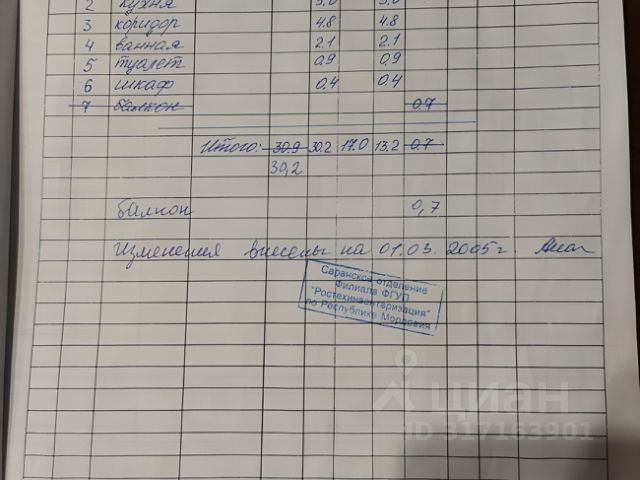 2 кухня 5.0 5.0
3 коридор 4.8 4.8
4 ванная 2.1 2.1
5 туалет 0.9 0.9
6 шкаф 0.4 0.4
7 балкон 0.7
Итого: 30.9 30.2 17.0 13.2 0.7
30,2
балкон 0,7
Изменения внесены на 01.03.2005 г.
Саранское отделение
Филиала ФГУП
"Ростехинвентаризация"
по Республике Мордовия
циан
ID 317163901